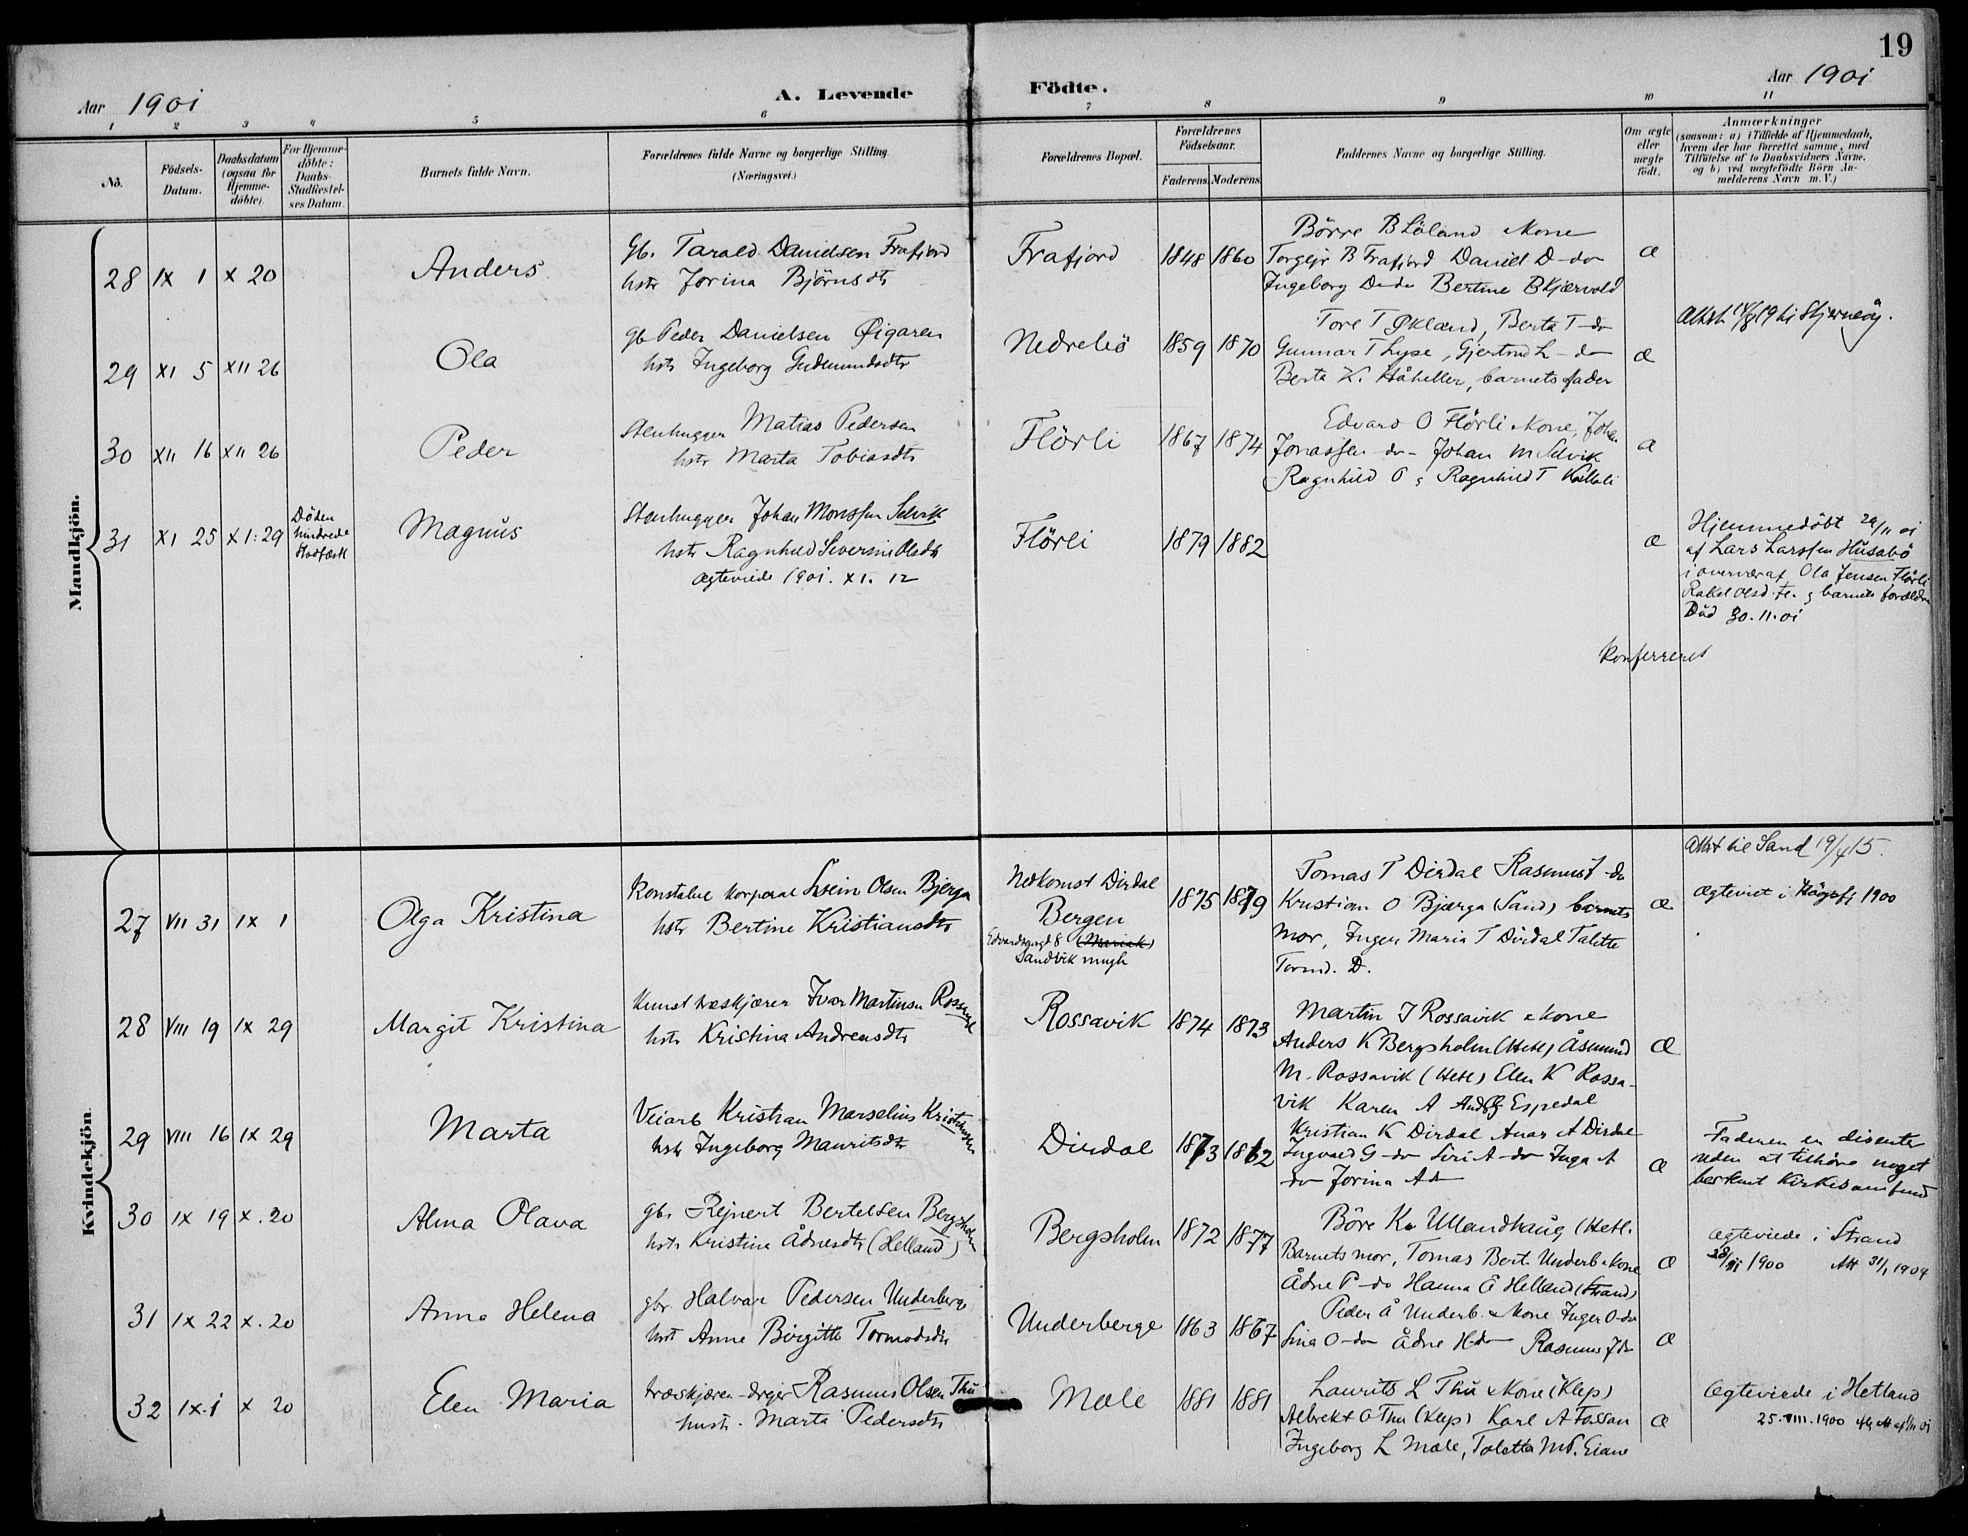 19
Aar 1901
A. Levende Födte.
Aar 1901
1 2 3 4 5 6 7 8 9 10 11
No.
Födsels-Datum.
Daabsdatum (ogsaa for Hjemme-döbte).
For Hjemme-döbte: Daabs-Stadfæstel-ses Datum.
Barnets fulde Navn.
Forældrenes fulde Navne og borgerlige Stilling.
(Næringsvei.)
Forældrenes Bopæl.
Forældrenes Födselsaar.
Faderens. Moderens.
Faddernes Navne og borgerlige Stilling.
Om ægte eller uægte födt.
Anmærkninger
(saasom: a) i Tilfælde af Hjemmedaab,
hvem der har forrettet samme, med
Tilföielse af to Daabsvidners Navne.
og b) ved uægtefödte Börn An-
melderens Navn m. V.)
Mandkjön.
28 IX 1 X 20 Anders
Gb. Tarald Danielsen Frafjord
hstr Jorina Björnsdtr
Frafjord 1848 1860
Börre B Löland Kone
Torgejr B Frafjord Daniel D-do
Ingeborg D-do Bertine B Kjærvold
æ
29 XI 5 XII 26 Ola
gb Peder Danielsen Øigaren
hstr Ingeborg Gudmundsdtr
Nedrebö 1859 1870
Tore T Økland, Berta T-do
Gunnar T Lyse, Gjertrud L-do
Berta K. Håheller, barnets fader
æ
30 XII 16 XII 26 Peder
Stenhugger Matias Pedersen
hstr Marta Tobiasdtr
Flörli 1867 1874
Edvard O Flörli Kone, Johan
Jonassen do- Johan M Selvik
Ragnhild O g Ragnhild T
æ
31 XI 25 XI:29
Döden hindrede Stadfæst
Magnus
Stenhugger Johan Monssen Selvik
hstr Ragnhild Severine Olsdtr
ægteviede 1901. XI. 12
Flörli 1879 1882
æ
Hjemmedöbt 29/11 01
af Lars Larssen Husabö
i overvær af Ola Jensen Flörli
Rakel Olsd. Fl. g barnets forældre
Död 30.11.01
Konferreret
Kvindekjön
Attst til Sand 19/4 15.
27 VII 31 IX 1 Olga Kristina
Konstabel Korporal Svein Olsen Bjerga
hstr Bertine Kristiansdtr
Nedkomst Dirdal
Bergen
Sandvik
1875 1879
Tomas T Dirdal Rasmus T-do
Kristian O Bjærga (Sand) barnets
mor, Inger Maria T Dirdal Talette
Tormd. D.
æ
ægteviet i 1900
28 VIII 19 IX 29 Margit Kristina
Kunst træskjærer Ivar Martinsen Rossavik
hstr Kristina Andreasdtr
Rossavik 1874 1873
Martin J Rossavik & Kone
Anders K Bergsholm (Hetl) Åsmund
M. Rossavik (Hetl) Elen K Rossa-
vik Karen A Espedal
æ
29 VIII 16 IX 29 Marta
Veiarb Kristian Marselius Kristensen
hstr Ingeborg Mauritsdtr
Dirdal 1873 1862
Kristian K Dirdal Anas A Dirdal
Ingvald G-do Siri A-do Inga A
do Jorina A do
æ
Faderen er disenter
uden at tilhöre noget
bestemt Kirkesamfund
30 IX 19 X. 20 Alma Olava
gbr Rejnert Bertelsen Bergsholm
hstr Kristine Ådnesdtr (Helland)
Bergsholm 1872 1877
Böre K Ullandhaug (Hetl.
Barnets mor, Tomas Bert. Underb & Kone
Ådne P-do Hanna E Helland (Strand)
æ
ægteviede i Strand
1900 Att 31/1 1904
31 IX 22 X. 20 Anne Helena
gbr. Halvar Pedersen Underberge
hstr Anne Birgitte Tormodsdtr
Underberge 1863 1867
Peder Å Underb. & Kone Inger O-do
Sina O-do Ådne H-do Rasmus J do
æ
32 IX.1 X 20 Elen Maria
træskjærer-drejer Rasmus Olsen Thu
hustr. Marta Pedersdtr
Mæle 1881 1881
Laurits L Thu & Kone (Klep)
Albrekt O Thu (Klep) Karl A Fossan
Ingeborg L Mæle, Toletta M P. Eiane
æ
Ægteviede i Hetland
25. VIII. 1900